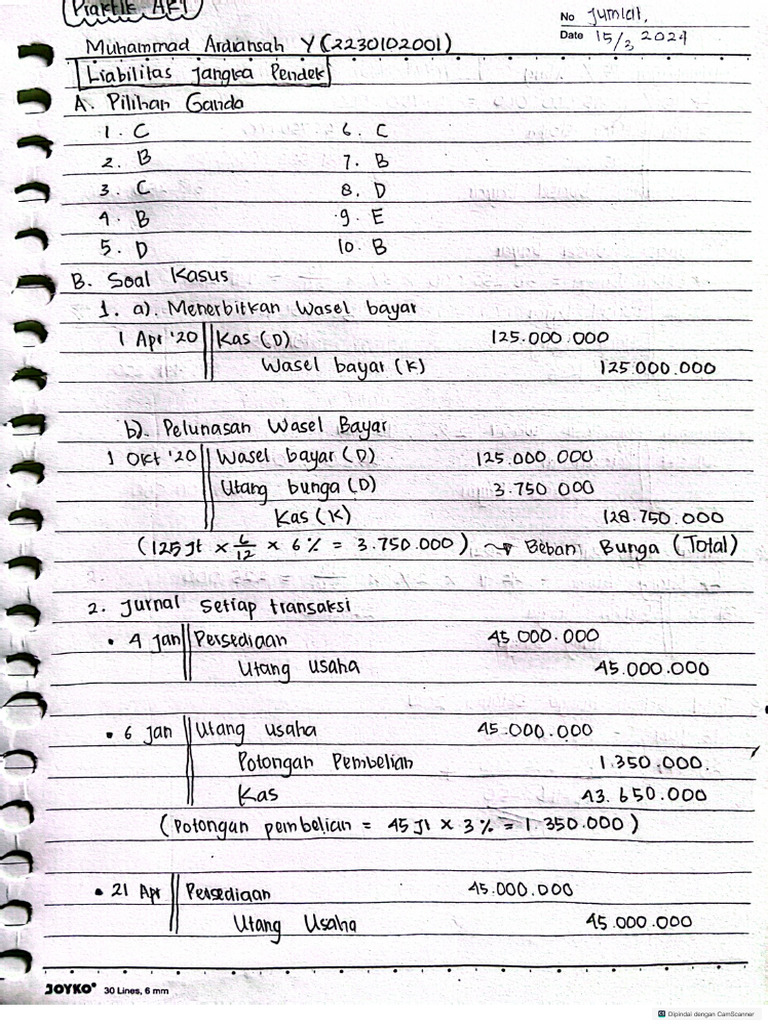 Praktik AK1
No Jumlat,
Date 15/3 2024
Muhammad Ardiansah Y (2230102001)
Liabilitas Jangka Pendek
A. Pilihan Ganda
1. C 6. C
2. B 7. B
3. C 8. D
4. B 9. E
5. D 10. B
B. Soal Kasus
1. a). Menerbitkan Wasel bayar
1 Apr '20 Kas (D) 125.000.000
Wasel bayar (K) 125.000.000
b). Pelunasan Wasel Bayar
1 Okt '20 Wasel bayar (D) 125.000.000
Utang bunga (D) 3.750.000
Kas (K) 128.750.000
(125 Jt × 6/12 × 6% = 3.750.000) ⤳ Beban Bunga (Total)
2. Jurnal Setiap transaksi
• 4 Jan Persediaan 45.000.000
Utang usaha 45.000.000
• 6 Jan Utang usaha 45.000.000
Potongan Pembelian 1.350.000.
Kas 43.650.000
(Potongan pembelian = 45 Jt × 3% = 1.350.000)
• 21 Apr Persediaan 45.000.000
Utang Usaha 45.000.000
JOYKO 30 Lines, 6 mm
Dipindai dengan CamScanner